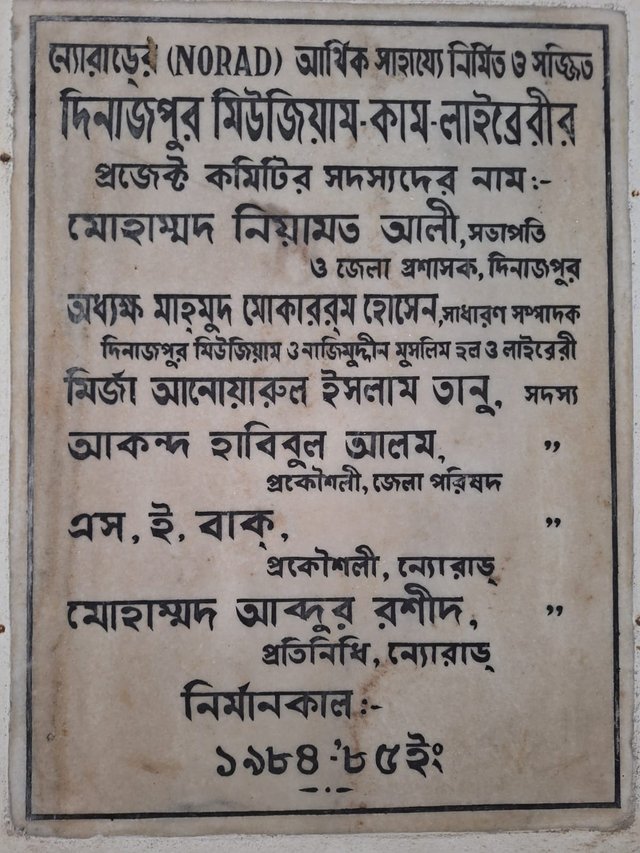 ন্যোরাডের (NORAD) আর্থিক সাহায্যে নির্মিত ও সজ্জিত
দিনাজপুর মিউজিয়াম-কাম-লাইব্রেরীর
প্রজেক্ট কমিটির সদস্যদের নাম:-
মোহাম্মদ নিয়ামত আলী, সভাপতি
ও জেলা প্রশাসক, দিনাজপুর
অধ্যক্ষ মাহ্‌মুদ মোকাররম হোসেন, সাধারণ সম্পাদক
দিনাজপুর মিউজিয়াম ও নাজিমুদ্দীন মুসলিম হল ও লাইব্রেরী
মির্জা আনোয়ারুল ইসলাম তানু, সদস্য
আকন্দ হাবিবুল আলম, ”
প্রকৌশলী, জেলা পরিষদ
এস, ই, বাক্, ”
প্রকৌশলী, ন্যোরাড্
মোহাম্মদ আব্দুর রশীদ, ”
প্রতিনিধি, ন্যোরাড্
নির্মানকাল:-
১৯৮৪-'৮৫ইং